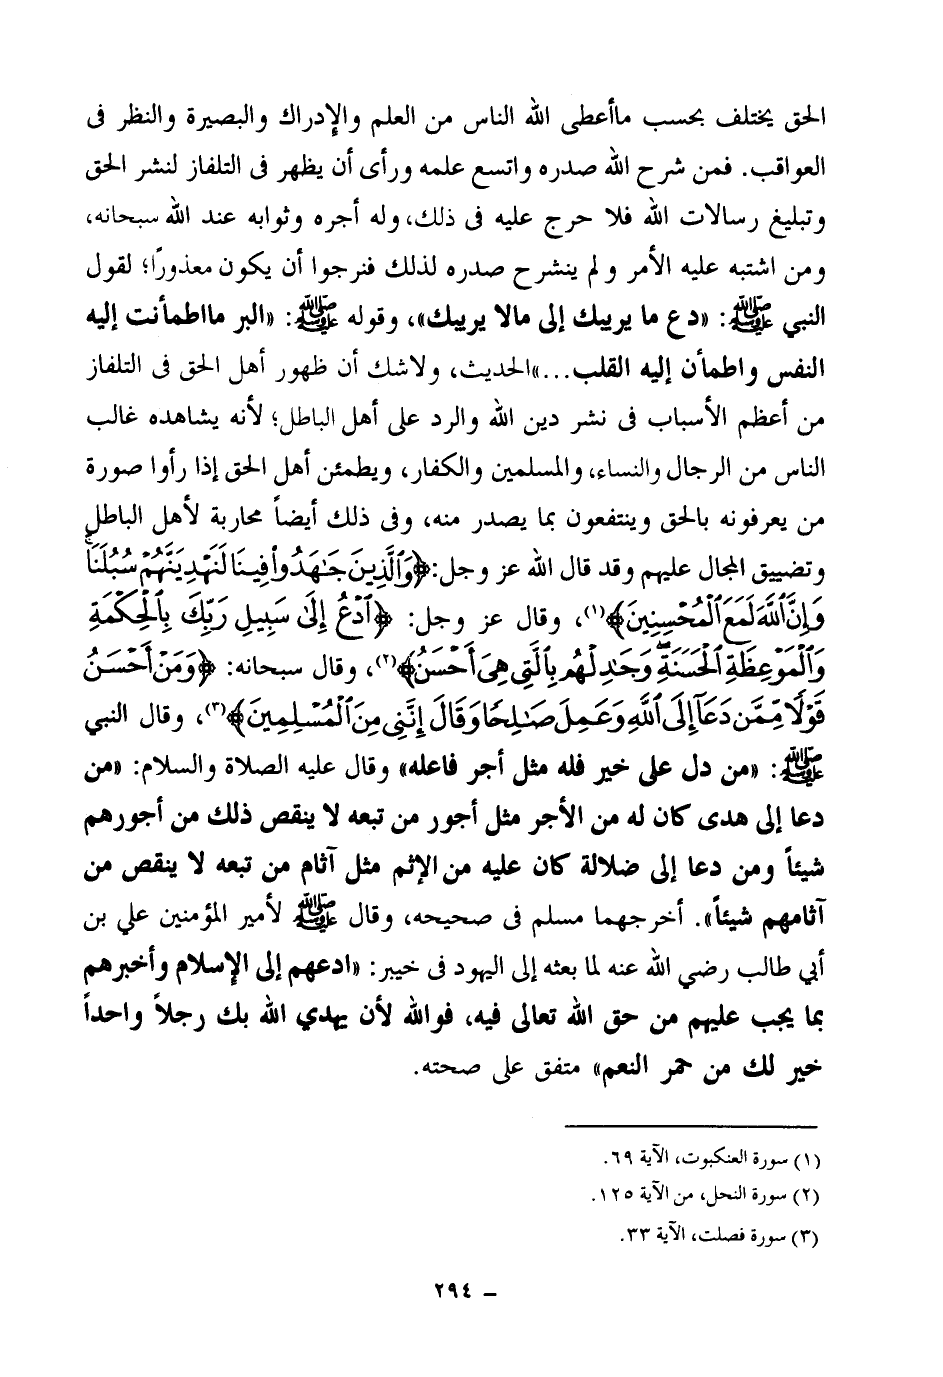 الحق يختلف بحسب ماأعطى الله الناس من العلم والإدراك والبصيرة والنظر فى
العواقب. فمن شرح الله صدره واتسع علمه ورأى أن يظهر فى التلفاز لنشر الحق
وتبليغ رسالات الله فلا حرج عليه فى ذلك، وله أجره وثوابه عند الله سبحانه،
ومن اشتبه عليه الأمر ولم ينشرح صدره لذلك فنرجوا أن يكون معذورًا؛ لقول
النبي ﷺ: «دع ما يريبك إلى مالا يريبك»، وقوله ﷺ: «البر مااطمأنت إليه
النفس واطمأن إليه القلب...» الحديث، ولاشك أن ظهور أهل الحق فى التلفاز
من أعظم الأسباب فى نشر دين الله والرد على أهل الباطل؛ لأنه يشاهده غالب
الناس من الرجال والنساء، والمسلمين والكفار، ويطمئن أهل الحق إذا رأوا صورة
من يعرفونه بالحق وينتفعون بما يصدر منه، وفى ذلك أيضاً محاربة لأهل الباطل
وتضييق المجال عليهم وقد قال الله عز وجل: ﴿وَٱلَّذِينَ جَٰهَدُوا۟ فِينَا لَنَهْدِيَنَّهُمْ سُبُلَنَاۚ
وَإِنَّ ٱللَّهَ لَمَعَ ٱلْمُحْسِنِينَ﴾(١)، وقال عز وجل: ﴿ٱدْعُ إِلَىٰ سَبِيلِ رَبِّكَ بِٱلْحِكْمَةِ
وَٱلْمَوْعِظَةِ ٱلْحَسَنَةِۖ وَجَٰدِلْهُم بِٱلَّتِى هِىَ أَحْسَنُ﴾(٢)، وقال سبحانه: ﴿وَمَنْ أَحْسَنُ
قَوْلًا مِّمَّن دَعَآ إِلَى ٱللَّهِ وَعَمِلَ صَٰلِحًا وَقَالَ إِنَّنِى مِنَ ٱلْمُسْلِمِينَ﴾(٣)، وقال النبي
ﷺ: «من دل على خير فله مثل أجر فاعله» وقال عليه الصلاة والسلام: «من
دعا إلى هدى كان له من الأجر مثل أجور من تبعه لا ينقص ذلك من أجورهم
شيئاً ومن دعا إلى ضلالة كان عليه من الإثم مثل آثام من تبعه لا ينقص من
آثامهم شيئاً». أخرجهما مسلم فى صحيحه، وقال ﷺ لأمير المؤمنين علي بن
أبي طالب رضي الله عنه لما بعثه إلى اليهود فى خيبر: «ادعهم إلى الإسلام وأخبرهم
بما يجب عليهم من حق الله تعالى فيه، فوالله لأن يهدي الله بك رجلاً واحداً
خير لك من حمر النعم» متفق على صحته.
(١) سورة العنكبوت، الآية ٦٩.
(٢) سورة النحل، من الآية ١٢٥.
(٣) سورة فصلت، الآية ٣٣.
– ٢٩٤